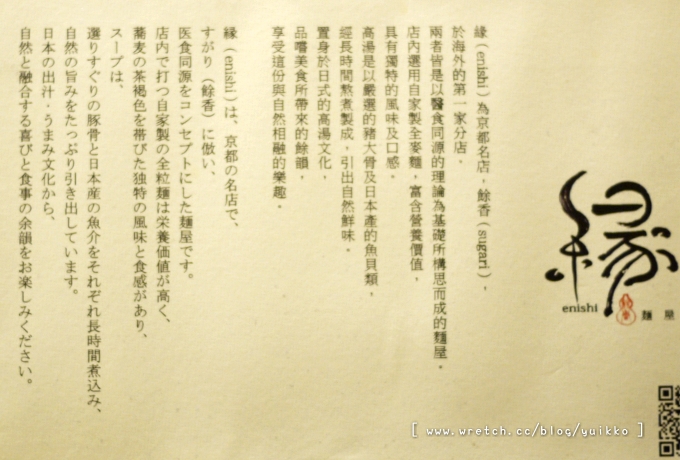 縁
enishi
麺屋
緣（enishi）為京都名店，餘香（sugari），
於海外的第一家分店．
兩者皆是以醫食同源的理論為基礎所構思而成的麵屋．
店內選用自家製全麥麵，富含營養價值，
具有獨特的風味及口感．
高湯是以嚴選的豬大骨及日本產的魚貝類，
經長時間熬煮製成，引出自然鮮味．
置身於日式的高湯文化，
品嚐美食所帶來的餘韻，
享受這份與自然相融的樂趣．
縁（enishi）は、京都の名店で、
すがり（餘香）に倣い、
医食同源をコンセプトにした麺屋です。
店内で打つ自家製の全粒麺は栄養価値が高く、
蕎麦の茶褐色を帯びた独特の風味と食感があり、
スープは、
選りすぐりの豚骨と日本産の魚介をそれぞれ長時間煮込み、
自然の旨みをたっぷり引き出しています。
日本の出汁・うまみ文化から、
自然と融合する喜びと食事の余韻をお楽しみください。
[ www.wretch.cc/blog/yuikko ]